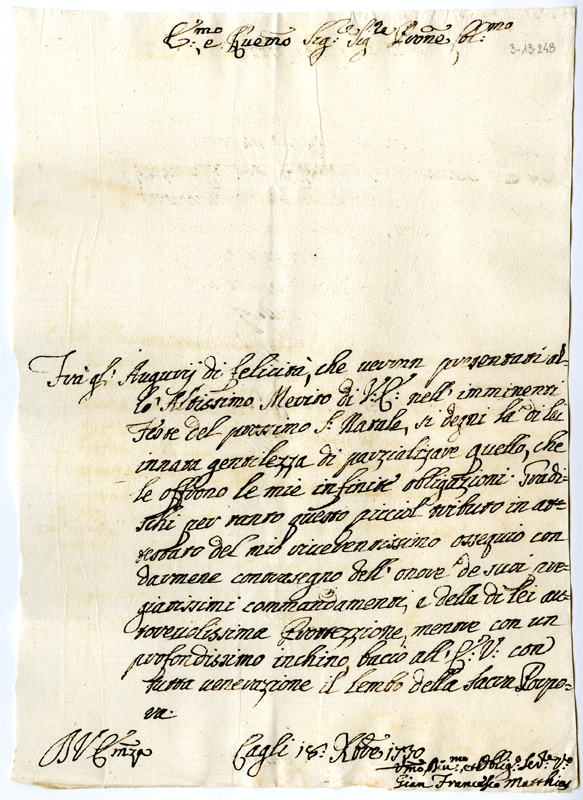 E.mo e Ruemo Sig.e Sig.re Prone Col.mo
3-13-243
Frà gl'Augurij di felicità, che uerran presentati al-
lo Altissimo Merito di V: E: nell'imminenti
Feste del prossimo S. Natale, si degni la di lei
innata gentilezza di parzializare quello, che
le offrono le mie infinite obligazioni. Gradi-
schi per tanto questo picciol tributo in at-
testato del mio riuerentissimo ossequio con
darmene contrasegno dell'onore de suoi pre-
giatissimi commandamenti, e della di lei au-
toreuolissima Protezzione, mentre con un
profondissimo inchino, bacio all'E: V: con
tutta uenerazione il lembo della Sacra Porpo-
ra.
Cagli 18: Xbre 1730
Gian Francesco Matthias